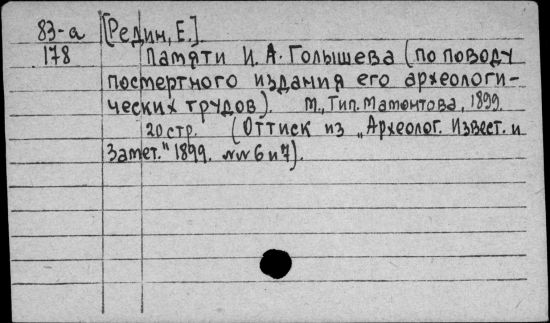 83-а [Редин, Е.]
178 Памяти И. А. Голышева (по поводу
посмертного издания его археологи-
ческих трудов). М., Тип. Мамонтова, 1899.
20 стр. (Оттиск из „Археолог. Извест. и
Замет." 1899. №№ 6 и 7).